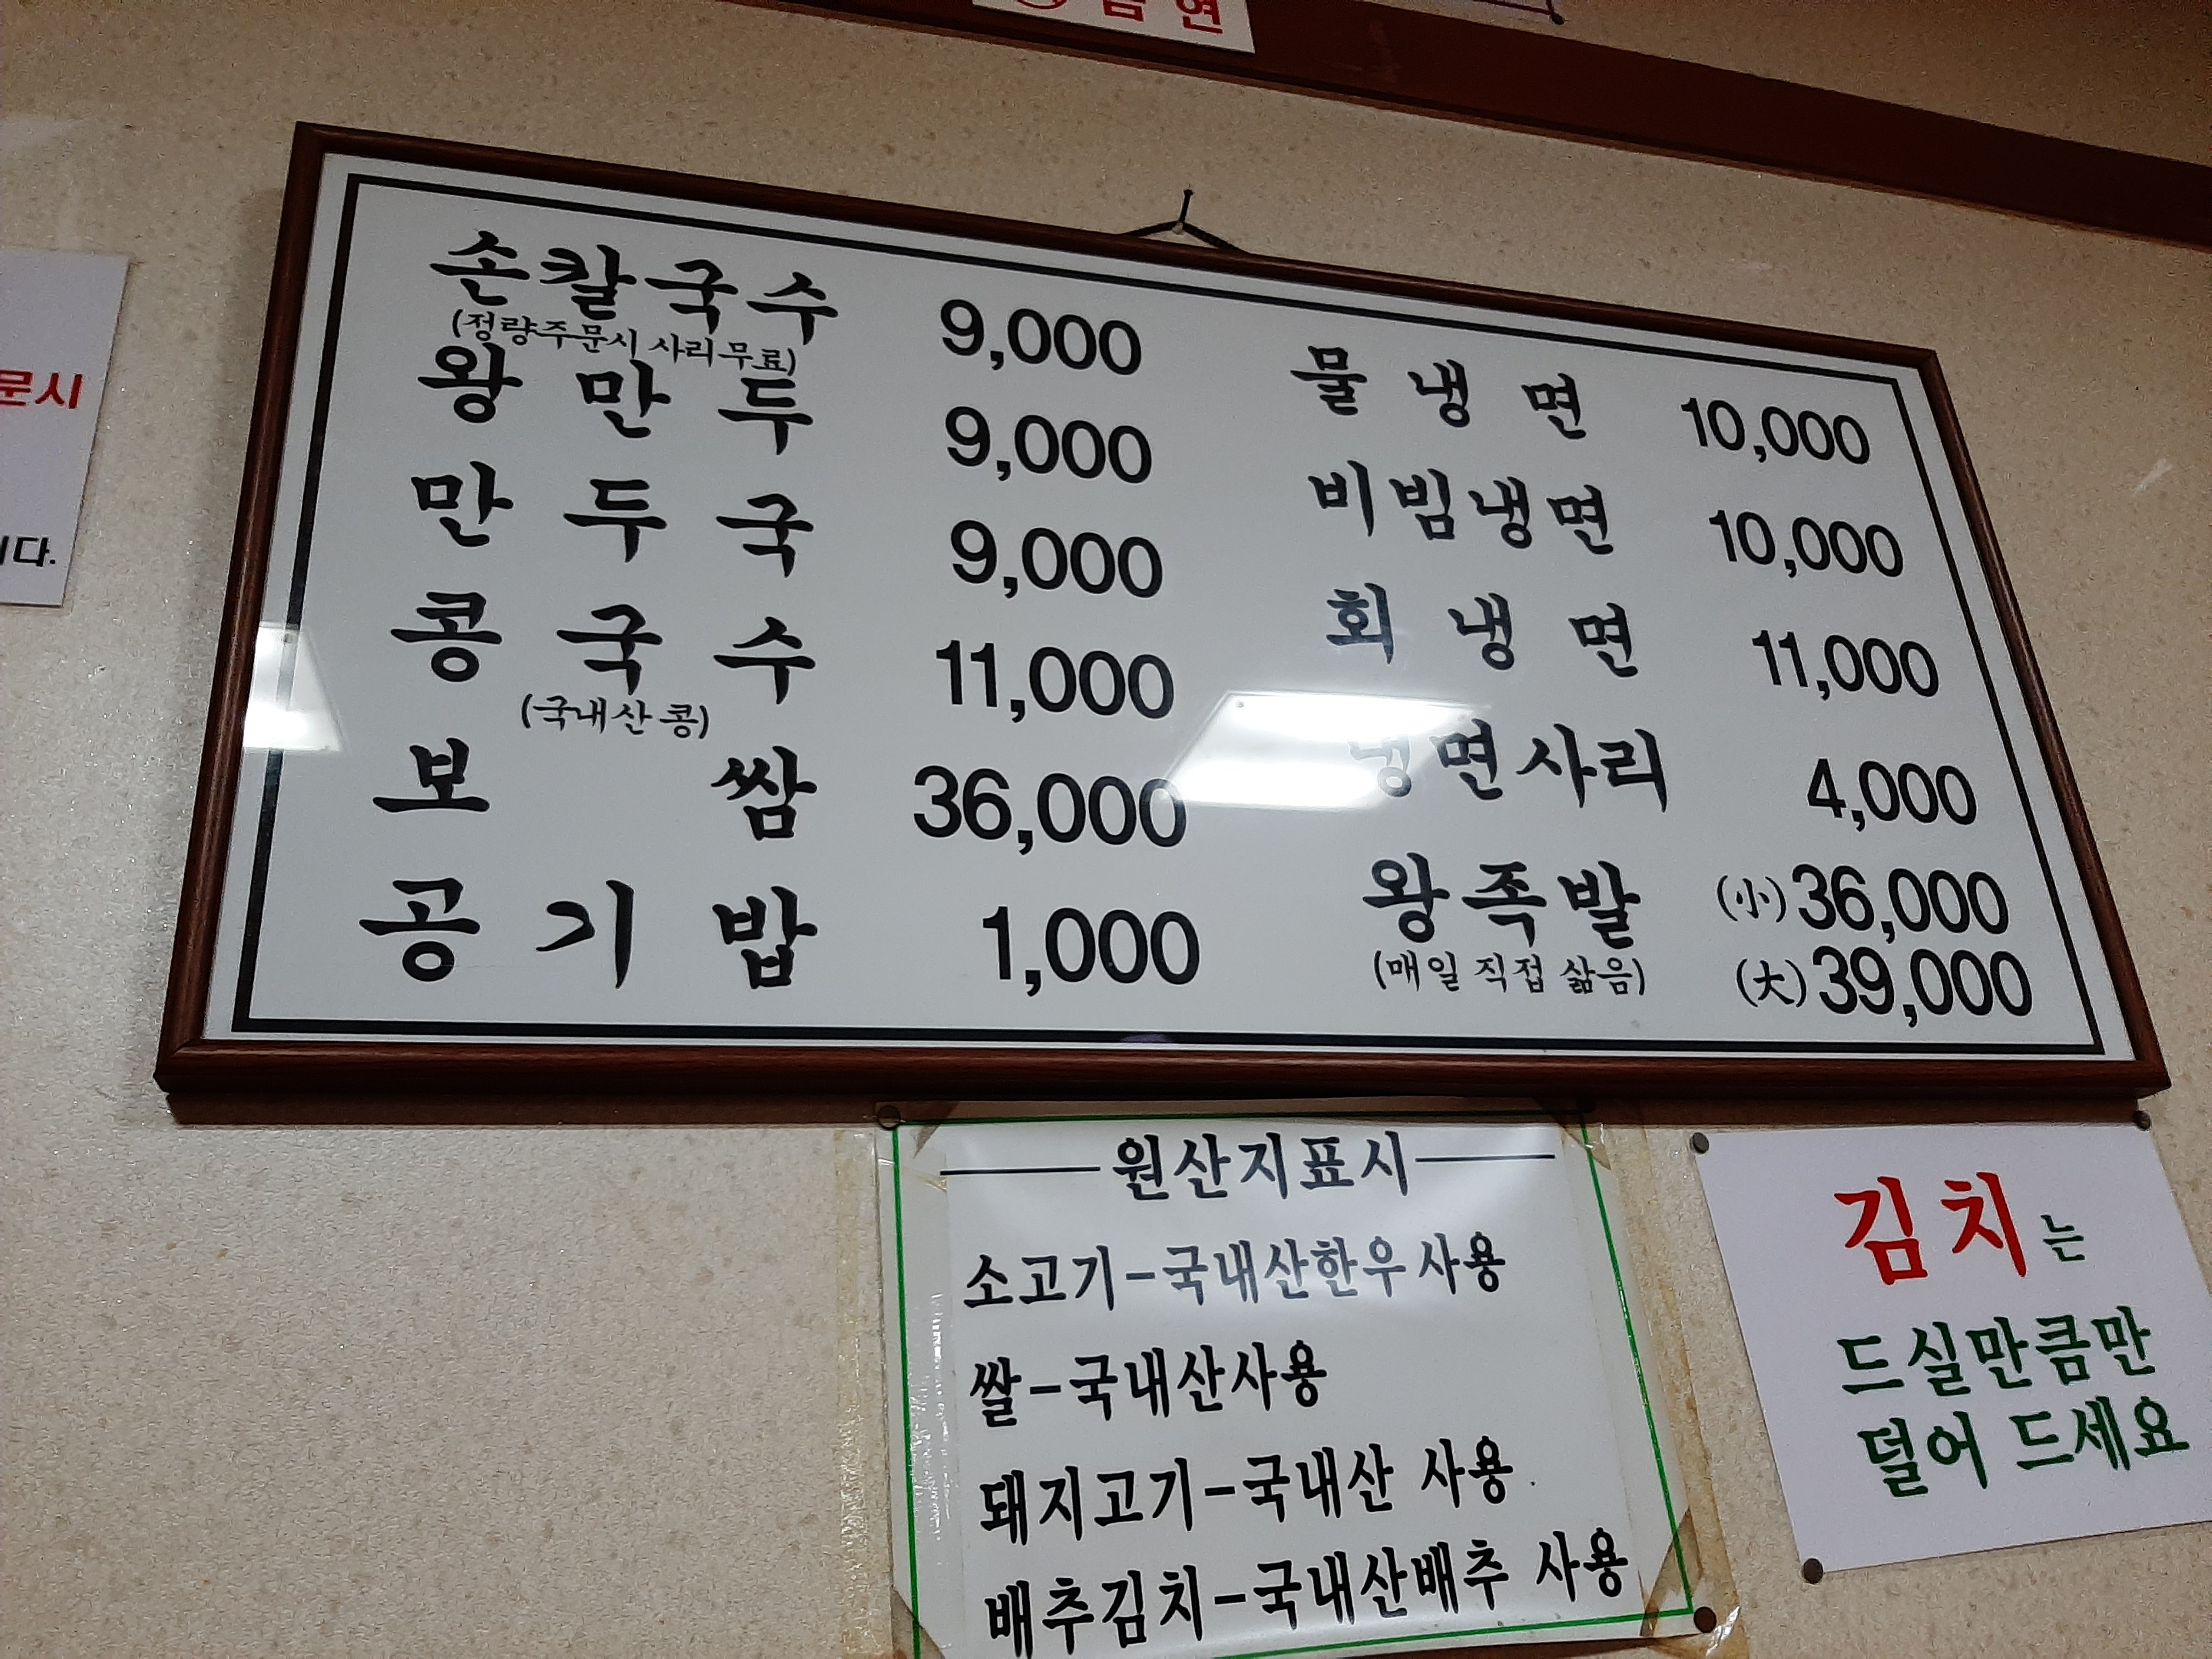 금연
문시
니다.
손칼국수 9,000
(정량주문시 사리무료)
왕만두 9,000
만두국 9,000
콩국수 11,000
(국내산콩)
보쌈 36,000
공기밥 1,000
물냉면 10,000
비빔냉면 10,000
회냉면 11,000
냉면사리 4,000
왕족발 (小)36,000
(매일 직접 삶음) (大)39,000
원산지표시
소고기-국내산한우사용
쌀-국내산사용
돼지고기-국내산 사용
배추김치-국내산배추 사용
김치는
드실만큼만
덜어 드세요